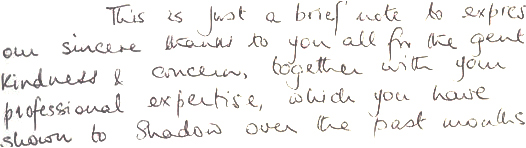 This is just a brief note to expres
our sincere thanks to you all for the gent
kindness & concern, together with your
professional expertise, which you have
shown to Shadow over the past months